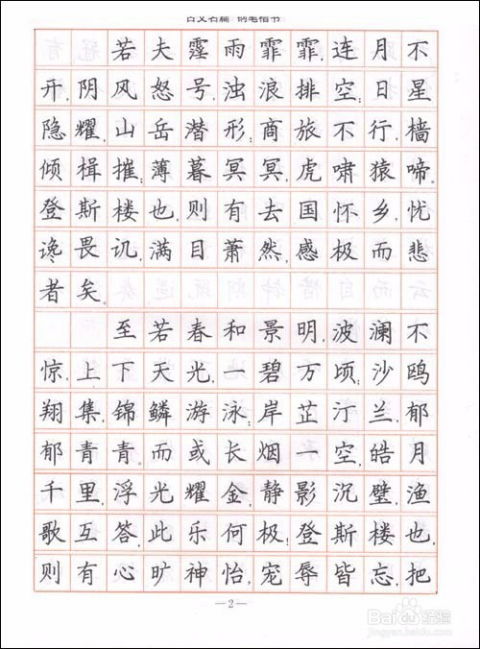 古文名篇 钢笔楷书
若夫霪雨霏霏,连月不
开,阴风怒号,浊浪排空;日星
隐耀,山岳潜形;商旅不行,樯
倾楫摧;薄暮冥冥,虎啸猿啼。
登斯楼也,则有去国怀乡,忧
谗畏讥,满目萧然,感极而悲
者矣。
至若春和景明,波澜不
惊,上下天光,一碧万顷;沙鸥
翔集,锦鳞游泳;岸芷汀兰,郁
郁青青。而或长烟一空,皓月
千里,浮光耀金,静影沉璧,渔
歌互答,此乐何极!登斯楼也,
则有心旷神怡,宠辱皆忘,把
—2—
Baidu 经验
jingyan.baidu.com